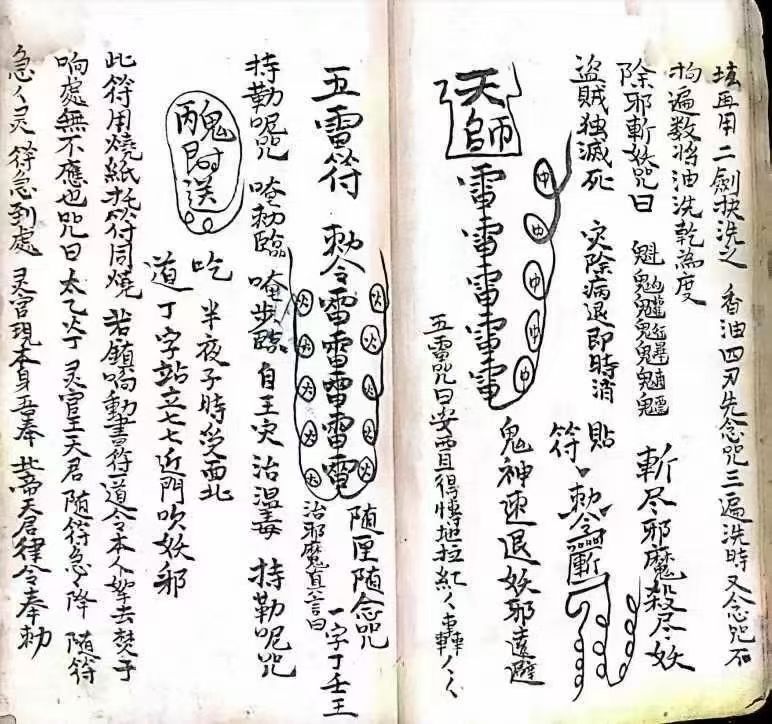 垓再用二劍抉洗之 香油四刃先念咒三遍洗時又念咒不
拘遍数将油洗乾為度
除邪斬妖咒曰 魁 斬尽邪魔殺尽妖
盜賊独滅死 灾除病退即時消
貼符 勅令 斬
鬼神速退妖邪遠避
天師 雷雷雷雷雷 中中中中中
五雷咒曰 安西且得 地拉紅人轟人人
五雷符 勅令雷雷雷雷電 火火火火火 火火火火火
随座随念咒
治邪魔真言曰 一字丁壬王
持勒呢咒 唵勅臨 唵步臨 自王灾治温毒 持勒呢咒
醜時送
吃 半夜子時煲西北
道 丁字站立七七近門吹妖邪
此符用燒紙托符同燒 若鎮响動書符道令本人拏去焚于
响處無不應也咒曰 太乙火丁灵官王天君 随符急降 随符
急人灵符急到處 灵官現本身吾奉 北帝天君律令奉勅